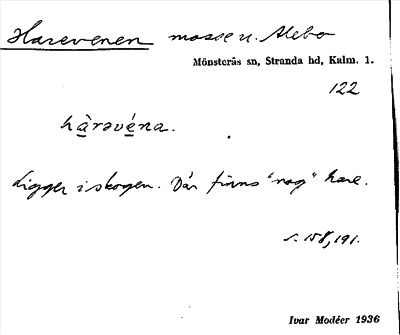 Harevenen mosse u. Alebo
Mönsterås sn, Stranda hd, Kalm. 1.
122
hàrəvéna.
Ligger i skogen. Där finns "nog" hare.
s. 158, 191.
Ivar Modéer 1936